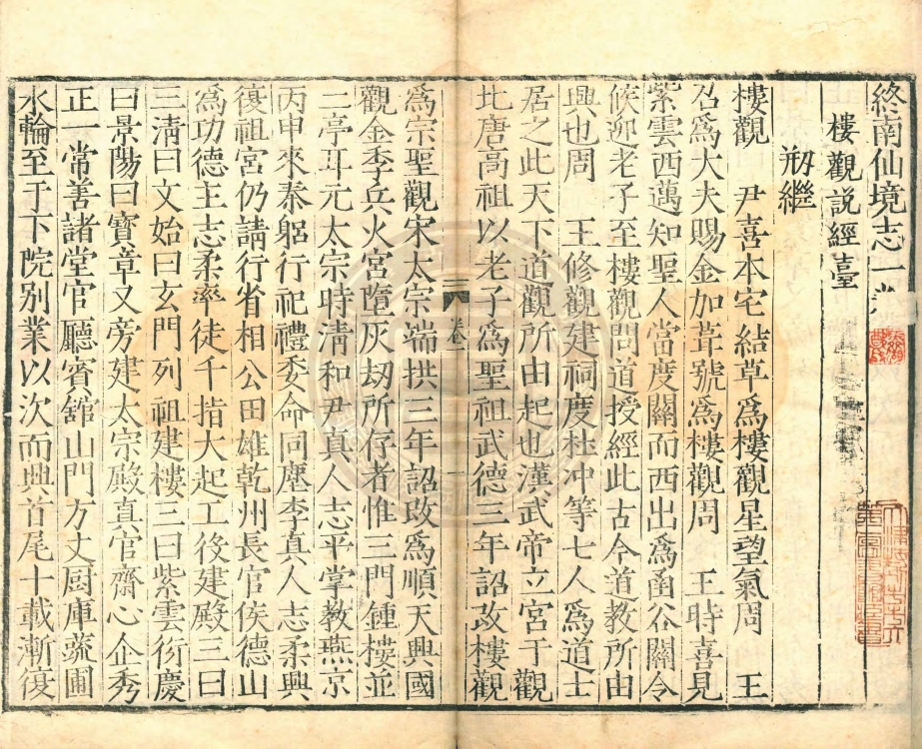 終南仙境志一卷
樓觀説經臺
剏繼
樓觀 尹喜本宅結草爲樓觀星望氣周 王
召爲大夫賜金加葺號爲樓觀周 王時喜見
紫雲西邁知聖人當度關而西出爲函谷關令
候迎老子至樓觀問道授經此古今道教所由
興也周 王修觀建祠度杜冲等七人爲道士
居之此天下道觀所由起也漢武帝立宮于觀
北唐高祖以老子爲聖祖武德三年詔改樓觀
卷一
一
爲宗聖觀宋太宗端拱三年詔改爲順天興國
觀金季兵火宮墮灰刼所存者惟三門鍾樓並
二亭耳元太宗時淸和尹真人志平掌教燕京
丙申來秦躬行祀禮委命同塵李真人志柔興
復祖宮仍請行省相公田雄乾州長官侯德山
爲功德主志柔率徒千指大起工役建殿三曰
三淸曰文始曰玄門列祖建樓三曰紫雲衍慶
曰景陽曰寳章又旁建太宗殿真官齋心企秀
正一常善諸堂官廳賓舘山門方丈厨庫蔬圃
水輪至于下院别業以次而興首尾十載漸復